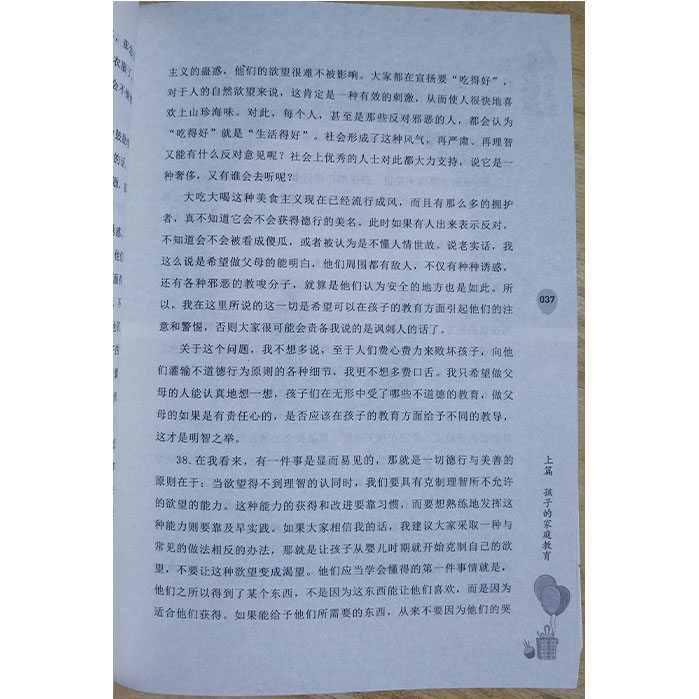 主义的蛊惑，他们的欲望很难不被影响。大家都在宣扬要“吃得好”，
对于人的自然欲望来说，这肯定是一种有效的刺激，从而使人很快地喜
欢上山珍海味。对此，每个人，甚至是那些反对邪恶的人，都会认为
“吃得好”就是“生活得好”。社会形成了这种风气，再严肃、再理智
又能有什么反对意见呢？社会上优秀的人士对此都大力支持，说它是一
种奢侈，又有谁会去听呢？
大吃大喝这种美食主义现在已经流行成风，而且有那么多的拥护
者，真不知道它会不会获得德行的美名，此时如果有人出来表示反对，
不知道会不会被看成傻瓜，或者被认为是不懂人情世故。说老实话，我
这么说是希望做父母的能明白，他们周围都有敌人，不仅有种种诱惑，
还有各种邪恶的教唆分子，就算是他们认为安全的地方也是如此。所
以，我在这里所说的这一切是希望可以在孩子的教育方面引起他们的注
意和警惕，否则大家很可能会责备我说的是讽刺人的话了。
关于这个问题，我不想多说，至于人们费心费力来败坏孩子，向他
们灌输不道德行为原则的各种细节，我更不想多费口舌。我只希望做父
母的人能认真地想一想，孩子们在无形中受了哪些不道德的教育，做父
母的如果是有责任心的，是否应该在孩子的教育方面给予不同的教导，
这才是明智之举。
38.在我看来，有一件事是显而易见的，那就是一切德行与美善的
原则在于：当欲望得不到理智的认同时，我们要具有克制理智所不允许
的欲望的能力。这种能力的获得和改进要靠习惯，而要想熟练地发挥这
种能力则要靠及早实践。如果大家相信我的话，我建议大家采取一种与
常见的做法相反的办法，那就是让孩子从婴儿时期就开始克制自己的欲
望，不要让这种欲望变成渴望。他们应当学会懂得的第一件事情就是，
他们之所以得到了某个东西，不是因为这东西能让他们喜欢，而是因为
适合他们获得。如果能给予他们所需要的东西，从来不要因为他们的哭
037
上篇 孩子的家庭教育